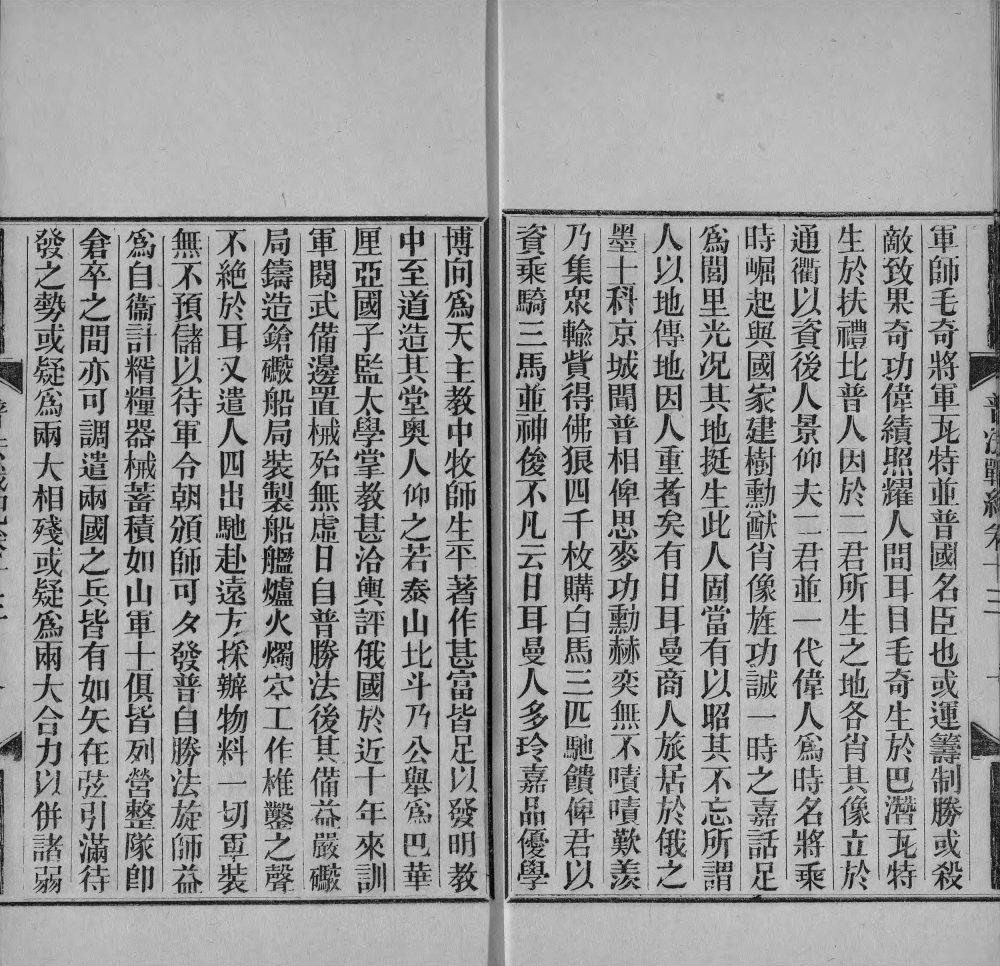 軍師毛奇將軍瓦特並普國名臣也或運籌制勝或殺
敵致果奇功偉績照耀人間耳目毛奇生於巴潛瓦特
生於扶禮比普人因於二君所生之地各肖其像立於
通衢以資後人景仰夫二君並一代偉人爲時名將乘
時崛起與國家建樹勳猷肖像旌功誠一時之嘉話足
爲閭里光况其地挺生此人固當有以昭其不忘所謂
人以地傳地因人重者矣有日耳曼商人旅居於俄之
墨士科京城聞普相俾思麥功勳赫奕無不嘖嘖歎羨
乃集眾輸貲得佛狼四千枚購白馬三匹馳饋俾君以
資乘騎三馬並神俊不凡云日耳曼人多玲嘉品優學
博向爲天主教中牧師生平著作甚富皆足以發明教
中至道造其堂奧人仰之若泰山北斗乃公舉爲巴華
厘亞國子監太學掌教甚洽輿評俄國於近十年來訓
軍閱武備邊置械殆無虛日自普勝法後其備益嚴礮
局鑄造鎗礮船局裝製船艦爐火燭空工作椎鑿之聲
不絕於耳又遣人四出馳赴遠方採辦物料一切軍裝
無不預儲以待軍令朝頒師可夕發普自勝法旋師益
爲自衞計糈糧器械蓄積如山軍士俱皆列營整隊卽
倉卒之間亦可調遣兩國之兵皆有如矢在弦引滿待
發之勢或疑爲兩大相殘或疑爲兩大合力以併諸弱